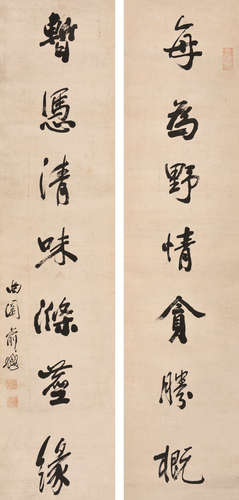 每為野情貪勝概
暫憑清味滌塵緣
曲園俞樾